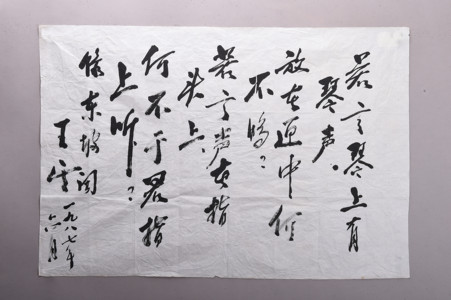 若言琴上有
琴声。
放在匣中何
不鸣？
若言声在指
头上。
何不于君指
上听？
东坡词
王
一九八七年
六月